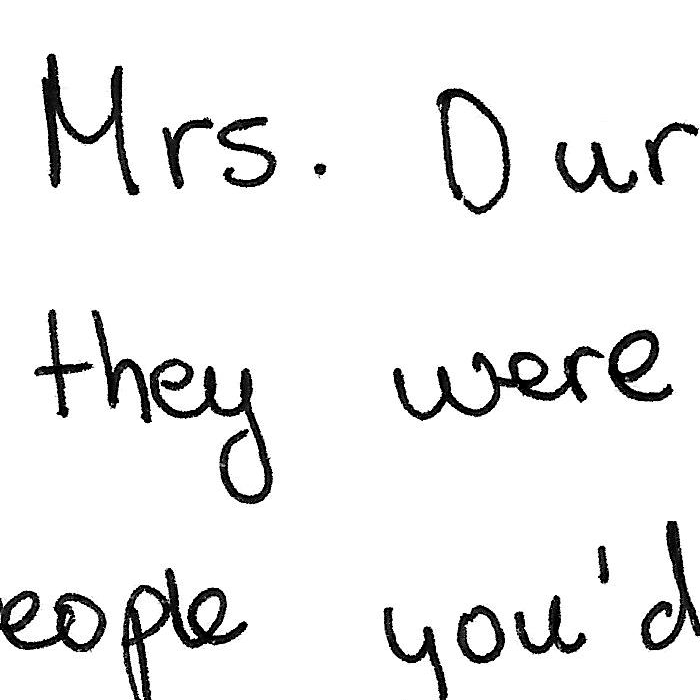 Mrs. Dur
they were
eople you'd